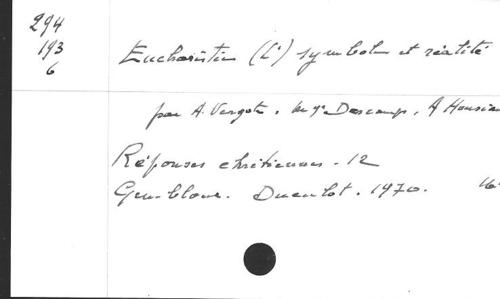 294
193
6
Eucharistie (L') symbole et réalité
par A. Vergote, Mgr Descamps, A Houssiau
Réponses chrétiennes - 12
Gembloux. Duculot. 1970. 16